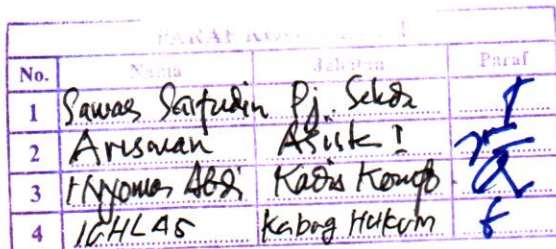 PARAF KOORDINASI
No. Nama Jabatan Paraf
1 Sawas Saifudin Pj. Sekda
2 Arisman Asisten I
3 Abdi Kadis Kominfo
4 ICHLAS Kabag Hukum